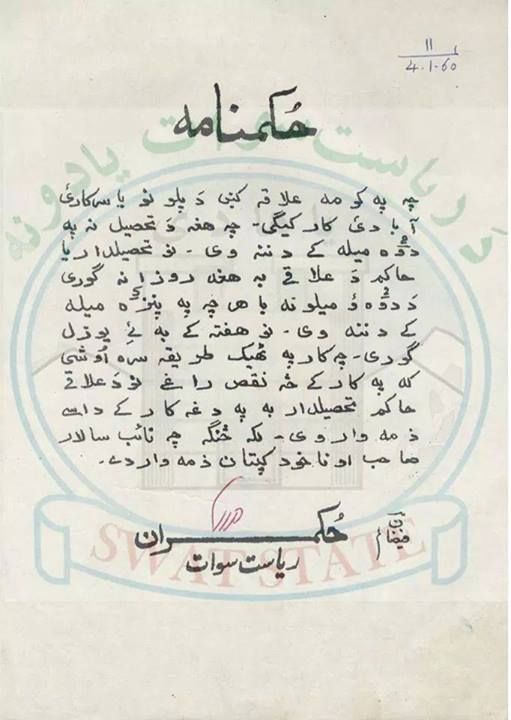 ۱۱
4.1.60
حُکمنامہ
چہ پہ کومہ علاقہ کښی دَ پلونو یا سرکاری
آبادئ کار کیګی۔ چہ هغہ دَ تحصیل نہ پہ
دوه میلہ کے دننہ وی۔ نو تحصیلدار یا
حاکم دَ علاقے بہ هغہ روزانہ گوری
دَ دوه میلونہ باهر چہ پہ پنځہ میلہ
کے دننہ وی۔ نو هفتہ کے بہ ئے یو ځل
گوری۔ چہ کار پہ ټهیک طریقہ سره اوشی
کہ پہ کار کے څہ نقص راغے نو دَ علاقے
حاکم تحصیلدار بہ پہ دغہ کار کے داسے
ذمہ وار وی۔ لکہ څنگہ چہ نائب سالار
صاحب او ناخود کپتان ذمہ وار دے۔
حُکمران
ریاست سوات
دَ ریاست سوات یادونہ
SWAT STATE